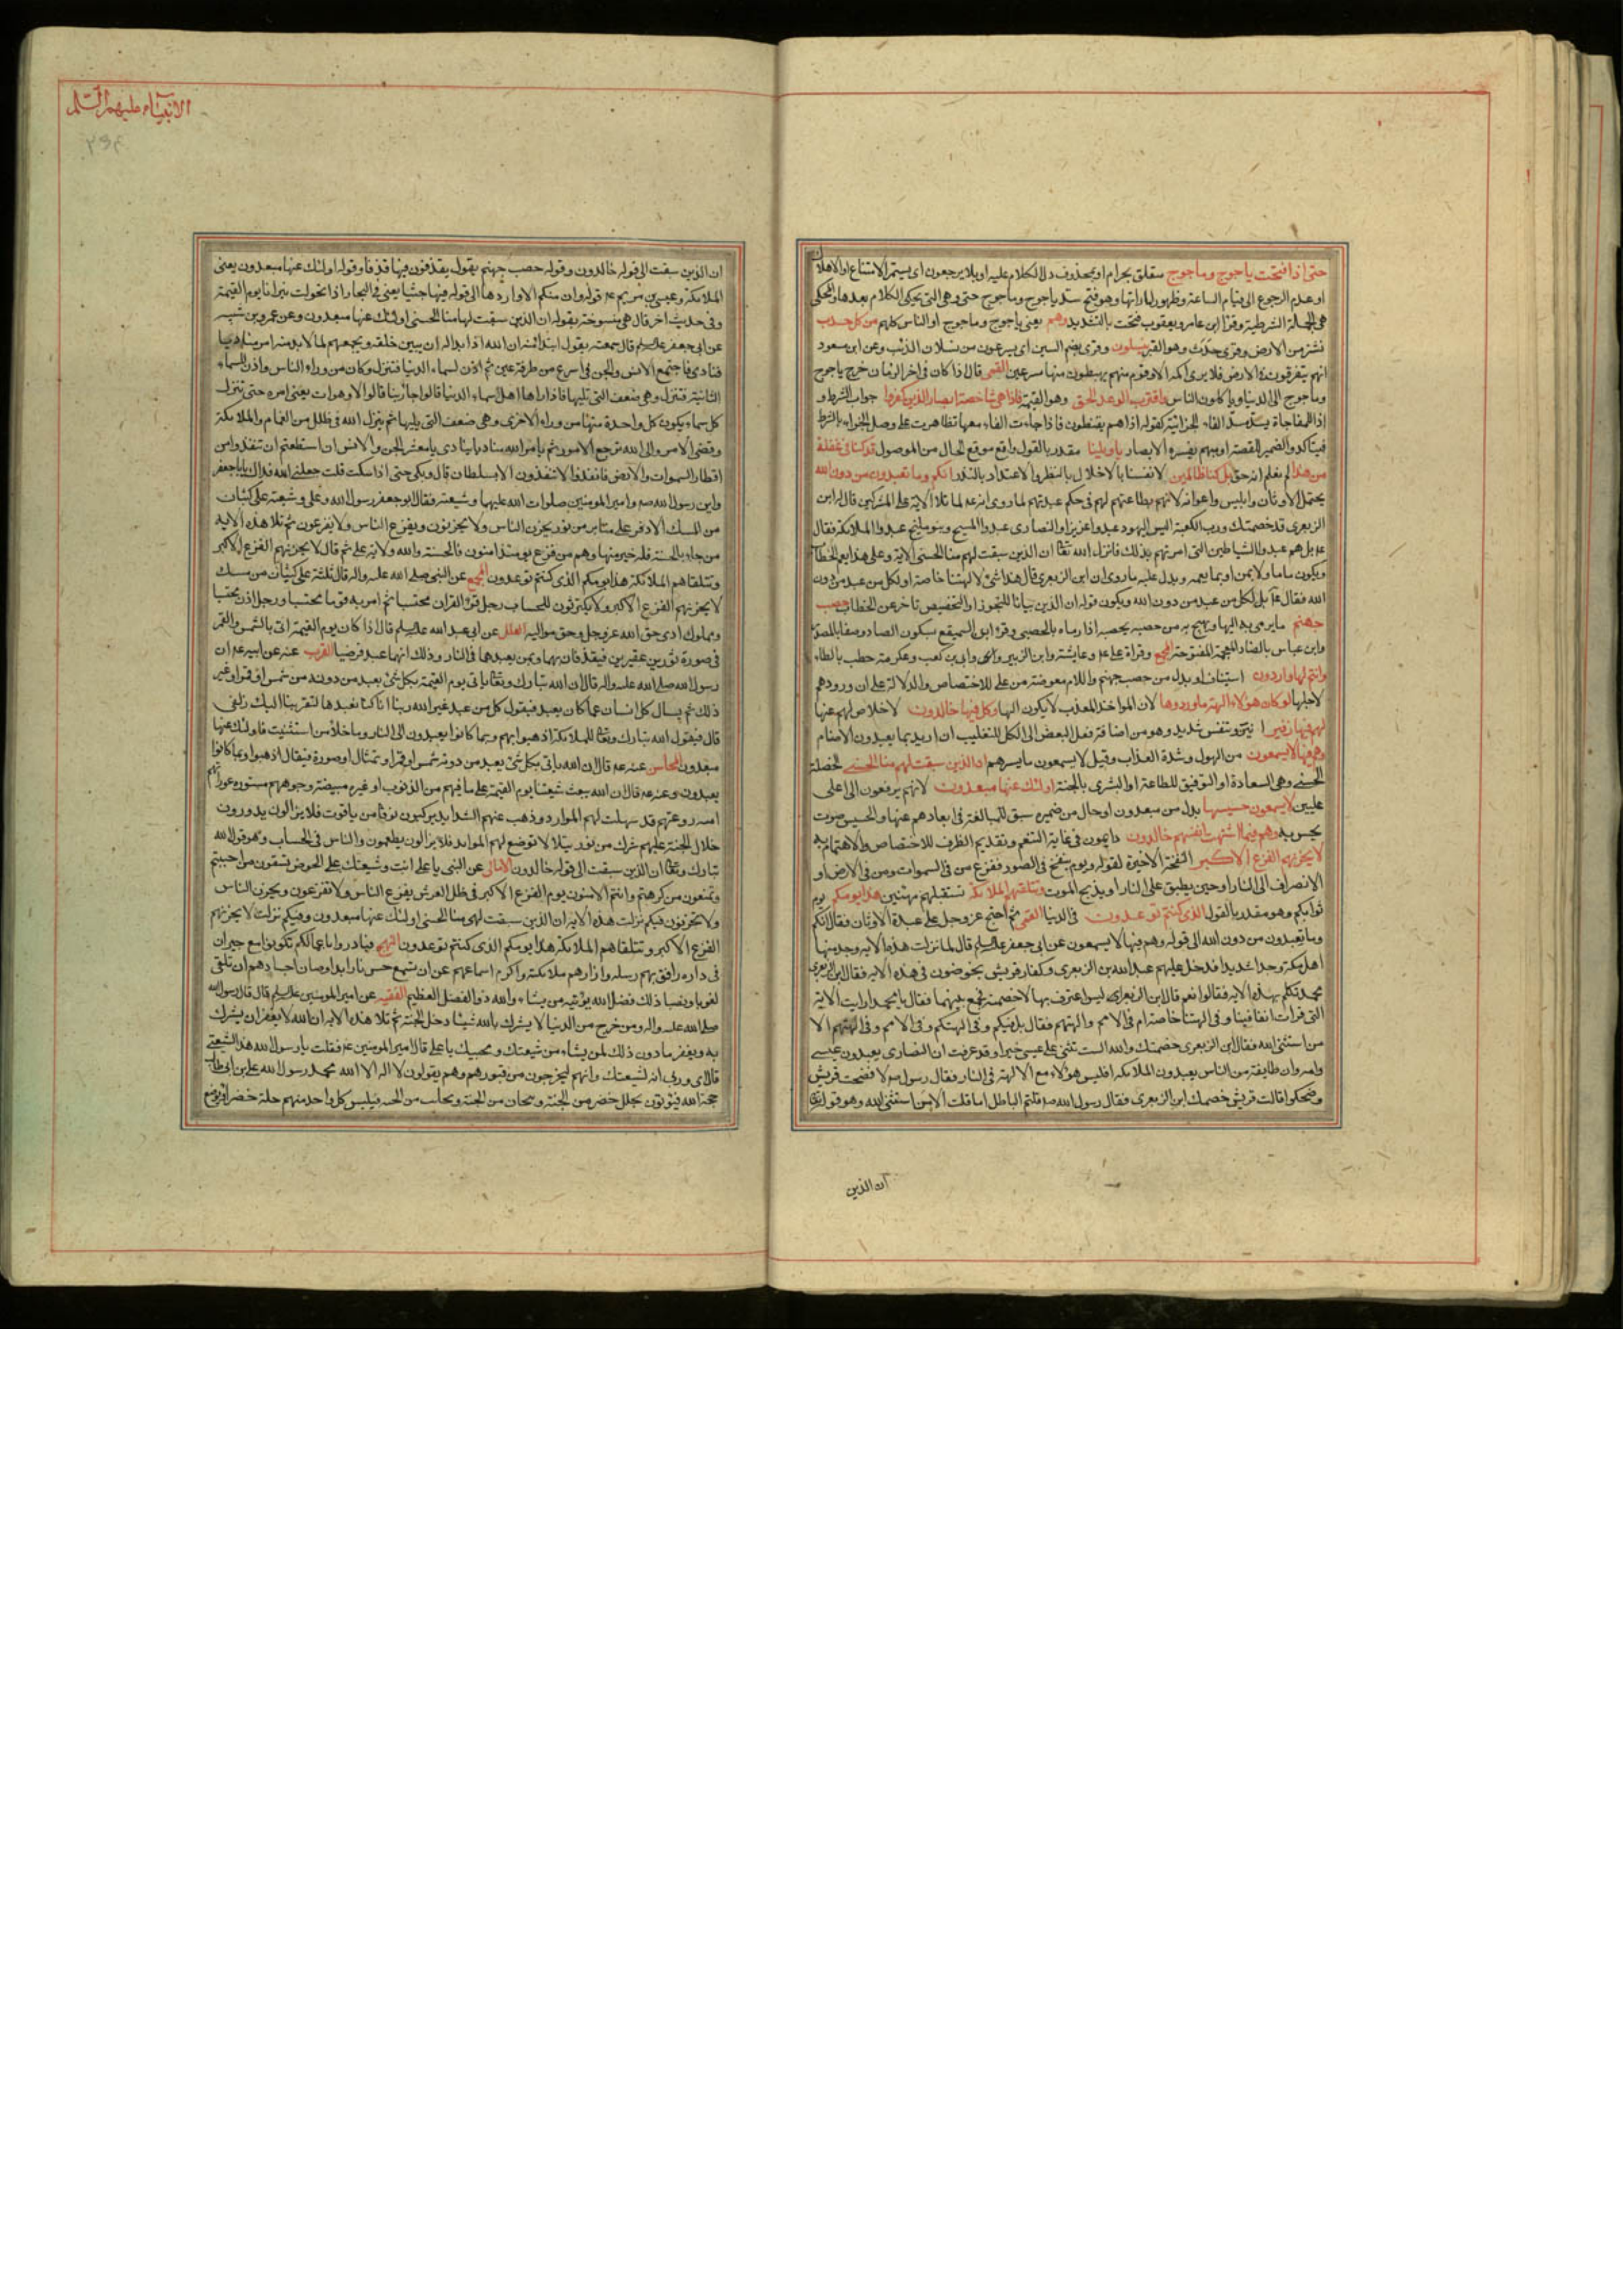 حتى اذا فتحت ياجوج وماجوج متعلق بحرام او بمحذوف دل الكلام عليه او بلا يرجعون اى يستمر الامتناع او الاهلاك
او عدم الرجوع الى قيام الساعة وظهور اماراتها وهو فتح سد ياجوج وماجوج حتى وهى التى يحكى الكلام بعدها والمحكى
هى الجملة الشرطية وقرأ ابن عامر ويعقوب فتحت بالتشديد وهم يعنى ياجوج وماجوج او الناس كلهم من كل حدب
نشز من الارض وقرئ جدث وهو القبر ينسلون وقرئ بضم السين اى يسرعون من نسلان الذئب وعن ابن مسعود
القمى قال اذا كان فى اخر الزمان خرج ياجوج
وماجوج الى الدنيا وياكلون الناس واقترب الوعد الحق وهو القيمة فاذا هى شاخصة ابصار الذين كفروا جواب الشرط و
اذا للمفاجاة يسد مسد الفاء الجزائية كقوله اذا هم يقنطون فاذا جاءت الفاء معها تظاهرت على وصل الجزاء بالشرط
فيتاكد والضمير للقصة او مبهم يفسره الابصار يا ويلنا مقدر بالقول واقع موقع الحال من الموصول قد كنا فى غفلة
من هذا لم نعلم انه حق بل كنا ظالمين لانفسنا بالاخلال بالنظر والاعتداد بالنذر انكم وما تعبدون من دون الله
يحتمل الاوثان وابليس واعوانه لانهم بطاعتهم لهم فى حكم عبدتهم لما روى انه عم لما تلا الاية على المشركين قال له ابن
الزبعرى قد خصمتك ورب الكعبة اليس اليهود عبدوا عزيرا والنصارى عبدوا المسيح وبنو مليح عبدوا الملائكة فقال
عم بل هم عبدوا الشياطين التى امرتهم بذلك فانزل الله تعالى ان الذين سبقت لهم منا الحسنى الاية وعلى هذا يعم الخطاب
ويكون ما ماولا بمن او بما يعمه ويدل عليه ما روى ان ابن الزبعرى قال هذا شئ لالهتنا خاصة او لكل من عبد من دون
الله فقال عم بل لكل من عبد من دون الله ويكون قوله ان الذين بيانا للتجوز او التخصيص تاخر عن الخطاب حصب
جهنم ما يرمى به اليها ويهيج به من حصبه يحصبه اذا رماه بالحصى وقرء ابن السميفع بسكون الصاد وصفا بالمصدر
وابن عباس بالضاد المعجمة المفتوحة المجمع وقراة على عم وعايشة وابن الزبير وابى بن كعب وعكرمة حطب بالطاء
وانتم لها واردون استيناف او بدل من حصب جهنم واللام معوضة من على للاختصاص والدلالة على ان ورودهم
لاجلها لو كان هؤلاء الهة ما وردوها لان المواخذ المعذب لا يكون الها وكل فيها خالدون لا خلاص لهم عنها
لهم فيها زفير انين وتنفس شديد وهو من اضافة فعل البعض الى الكل للتغليب ان اريد بما يعبدون الاصنام
وهم فيها لا يسمعون من الهول وشدة العذاب وقيل لا يسمعون ما يسرهم ان الذين سبقت لهم منا الحسنى الخصلة
الحسنى وهى السعادة او التوفيق للطاعة او البشرى بالجنة اولئك عنها مبعدون لانهم يرفعون الى اعلى
عليين لا يسمعون حسيسها بدل من مبعدون او حال من ضميره سبق للمبالغة فى ابعادهم عنها والحسيس صوت
يحس به وهم فيما اشتهت انفسهم خالدون دايمون فى غاية التنعم وتقديم الظرف للاختصاص والاهتمام به
لا يحزنهم الفزع الاكبر النفخة الاخيرة لقوله ويوم ينفخ فى الصور ففزع من فى السموات ومن فى الارض او
الانصراف الى النار او حين يطبق على النار او يذبح الموت وتتلقيهم الملائكة تستقبلهم مهنئين هذا يومكم يوم
ثوابكم وهو مقدر بالقول الذى كنتم توعدون فى الدنيا القمى ثم احتج عز وجل على عبدة الاوثان فقال انكم
وما تعبدون من دون الله الى قوله وهم فيها لا يسمعون عن ابى جعفر عليه السلم قال لما نزلت هذه الاية وجد منها
اهل مكة وجدا شديدا فدخل عليهم عبد الله بن الزبعرى وكفار قريش يخوضون فى هذه الاية فقال ابن الزبعرى
محمد تكلم بهذه الاية فقالوا نعم قال ابن الزبعرى ليس اعترف بها لاخصمنه فجمع بينهما فقال يا محمد ارايت الاية
التى قرات انفا فينا وفى الهتنا خاصة ام فى الامم والهتهم فقال بل فيكم وفى الهتكم وفى الامم وفى الهتهم الا
من استثنى الله فقال ابن الزبعرى خصمتك والله الست تثنى على عيسى خيرا وقد عرفت ان النصارى يعبدون عيسى
وامه وان طايفة من الناس يعبدون الملائكة افليس هؤلاء مع الالهة فى النار فقال رسول الله لا فضجت قريش
وضحكوا قالت قريش خصمك ابن الزبعرى فقال رسول الله صم قلتم الباطل اما قلت الا من استثنى الله وهو قوله تعالى
ان الذين
الانبياء عليهم السلم
ان الذين سبقت الى قوله خالدون وقوله حصب جهنم يقول يقذفون فيها قذفا وقوله اولئك عنها مبعدون يعنى
الملائكة وعيسى بن مريم عم قوله وان منكم الا واردها الى قوله فيها جثيا يعنى فى البحار اذا تحولت نيرانا يوم القيمة
وفى حديث اخر قال هى منسوخة بقوله ان الذين سبقت لهم منا الحسنى اولئك عنها مبعدون وعن عمرو بن شيبه
عن ابى جعفر عليه السلم قال سمعته يقول ابتداء منه ان الله اذا بدا له ان يبين خلقه ويجمعهم لما لا بد منه امر مناديا
فنادى فاجتمع الانس والجن فى اسرع من طرفة عين ثم اذن لسماء الدنيا فتنزل وكان من وراء الناس واذن للسماء
الثانية فتنزل وهى ضعف التى تليها فاذا راها اهل سماء الدنيا قالوا جاء ربنا قالوا لا وهو ات يعنى امره حتى تنزل
كل سماء يكون كل واحدة منها من وراء الاخرى وهى ضعف التى يليها ثم ينزل الله فى ظلل من الغمام والملائكة
وقضى الامر والى الله ترجع الامور ثم يامر الله مناديا ينادى يا معشر الجن والانس ان استطعتم ان تنفذوا من
اقطار السموات والارض فانفذوا لا تنفذون الا بسلطان قال وبكى حتى اذا سكت قلت جعلنى الله فداك يا ابا جعفر
واين رسول الله صم وامير المومنين صلوات الله عليهما وشيعته فقال ابو جعفر رسول الله وعلى وشيعته على كثبان
من المسك الاذفر على منابر من نور يحزن الناس ولا يحزنون ويفزع الناس ولا يفزعون ثم تلا هذه الاية
من جاء بالحسنة فله خير منها وهم من فزع يومئذ امنون فالحسنة والله ولاية على ثم قال لا يحزنهم الفزع الاكبر
وتتلقاهم الملائكة هذا يومكم الذى كنتم توعدون المجمع عن النبى صلى الله عليه واله قال ثلثة على كثبان من مسك
لا يحزنهم الفزع الاكبر ولا يكترثون للحساب رجل قرء القران محتسبا ثم ام به قوما محتسبا ورجل اذن محتسبا
ومملوك ادى حق الله عز وجل وحق مواليه العلل عن ابى عبد الله عليه السلم قال اذا كان يوم القيمة اتى بالشمس والقمر
فى صورة ثورين عقيرين فيقذفان بهما وبمن يعبدهما فى النار وذلك انهما عبدا فرضيا القرب عنه عن ابيه عم ان
رسول الله صلى الله عليه واله قال ان الله تبارك وتعالى ياتى يوم القيمة بكل شئ يعبد من دونه من شمس او قمر او غير
ذلك ثم يسال كل انسان عما كان يعبد فيقول كل من عبد غير الله ربنا انا كنا نعبدها لتقربنا اليك زلفى
قال فيقول الله تبارك وتعالى للملائكة اذهبوا بهم وبما كانوا يعبدون الى النار وما خلا من استثنيت فاولئك عنها
مبعدون المحاسن عنه عم قال ان الله ياتى بكل شئ يعبد من دونه شمس او قمر او تمثال او صورة فيقال اذهبوا وبما كانوا
يعبدون وعنه عم قال ان الله يبعث شيعتنا يوم القيمة على ما فيهم من الذنوب او غيره مبيضة وجوههم مستورة عوراتهم
امنة روعتهم قد سهلت لهم الموارد وذهب عنهم الشدايد يركبون نوقا من ياقوت فلا يزالون يدورون
خلال الجنة عليهم شرك من نور يتلالا توضع لهم الموايد فلا يزالون يطعمون والناس فى الحساب وهو قول الله
تبارك وتعالى ان الذين سبقت الى قوله خالدون الامالى عن النبى يا على انت وشيعتك على الحوض تسقون من احببتم
وتمنعون من كرهتم وانتم الامنون يوم الفزع الاكبر فى ظل العرش يفزع الناس ولا تفزعون ويحزن الناس
ولا تحزنون فيكم نزلت هذه الاية ان الذين سبقت لهم منا الحسنى اولئك عنها مبعدون وفيكم نزلت لا يحزنهم
الفزع الاكبر وتتلقاهم الملائكة هذا يومكم الذى كنتم توعدون النهج فبادروا باعمالكم تكونوا مع جيران
فى داره رافق بهم رسله وازارهم ملائكته واكرم اسماعهم عن ان تسمع حسيس نار ابدا وصان اجسادهم ان تلقى
لغوبا ونصبا ذلك فضل الله يؤتيه من يشاء والله ذو الفضل العظيم الفقيه عن امير المومنين عليه السلم قال قال رسول الله
صلى الله عليه واله ومن خرج من الدنيا لا يشرك بالله شيئا دخل الجنة ثم تلا هذه الاية ان الله لا يغفر ان يشرك
به ويغفر ما دون ذلك لمن يشاء من شيعتك ومحبيك يا على قال امير المومنين عم فقلت يا رسول الله هذا لشيعتى
قال اى وربى انه لشيعتك وانهم ليخرجون من قبورهم وهم يقولون لا اله الا الله محمد رسول الله على بن ابى طالب
حجة الله فيؤتون بحلل خضر من الجنة فيلبس كل واحد منهم حلة خضراء